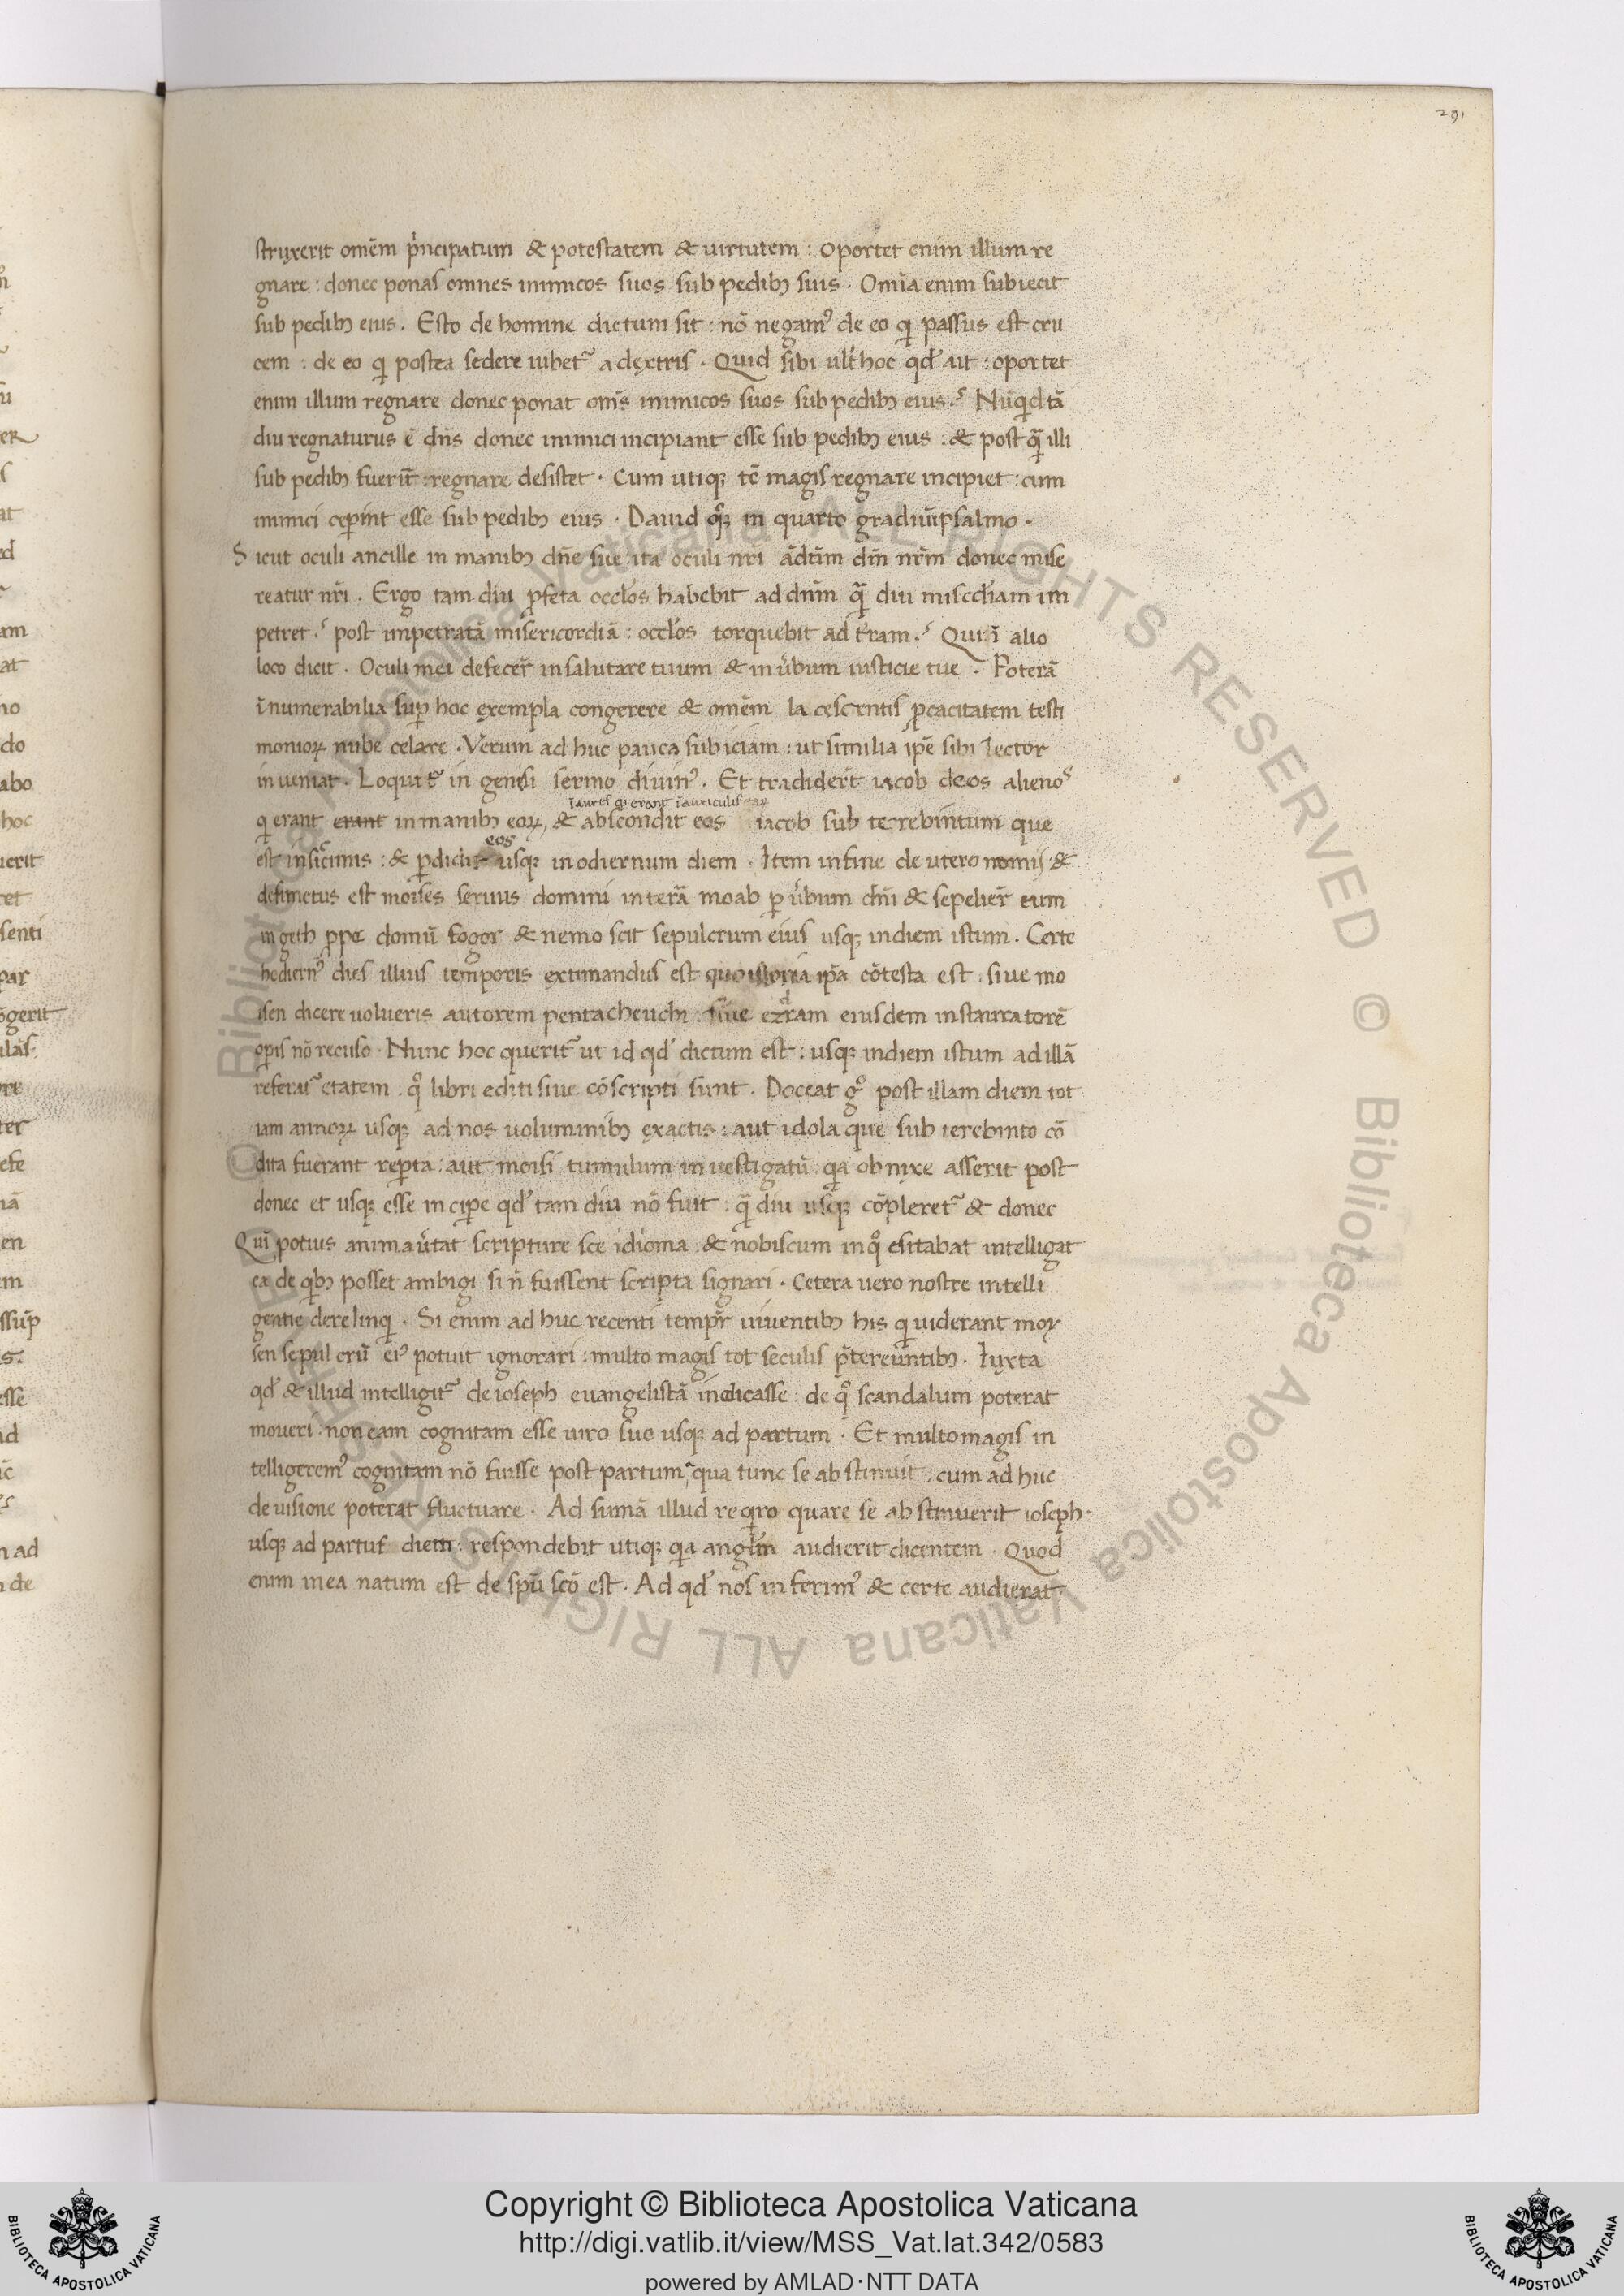 291
struxerit omēm p̄ncipatum & potestatem & uirtutem : Oportet enim illum re
gnare : donec ponas omnes inimicos suos sub pedibꝫ suis . Omīa enim subiecit
sub pedibꝫ eius . Esto de homine dictum sit : nō negamꝰ de eo qi passus est cru
cem : de eo qi postea sedere iubet᷑ a dextris . Quid sibi ult̄ hoc qd̓ ait : oportet
enim illum regnare donec ponat om̄s inimicos suos sub pedibꝫ eius . Nūqid tā
diu regnaturus ē dn̄s donec inimici incipiant esse sub pedibꝫ eius : & post qᷓ illi
sub pedibꝫ fuerīt : regnare desistet . Cum utiqꝫ tc̄ magis regnare incipiet : cum
inimici ceperint esse sub pedibꝫ eius . Dauid qꝫ in quarto graduū psalmo .
Sicut oculi ancille in manibꝫ dn̄e sue : ita oculi nr̄i ad dn̄m nr̄m donec mise
reatur nr̄i . Ergo tam diu p̱feta occl̓os habebit ad dn̄m qᷓ diu mis̄cdiam im
petret . post impetratā misericordiā : occl̓os torquebit ad t̄ram . Qui ī alio
loco dicit . Oculi mei defecer̄ in salutare tuum & in u̓bum iusticie tue . Poterā
īnumerabilia suꝑ hoc exempla congerere & omēm la cescentis ꝓcacitatem testi
moniorꝝ nube celare . Verum ad huc pauca subiciam : ut similia ip̄e sibi lector
inueniat . Loquit᷑ in genesi sermo diuinꝰ . Et tradider̄t iacob deos alienos
īaures q̄ erant īauriculis eaꝝ
qi erant erant in manibꝫ eoꝝ , & abscondit eos iacob sub terebintum que
eos
est in sicimis : & ꝑdidit usqꝫ in odiernum diem . Item in fine de utero nomij : &
defunctus est moises seruus domini in terā moab ꝑ u̓bum dn̄i & sepelier̄ eum
in geth ꝓpe domū fogor & nemo scit sepulcrum eius usqꝫ in diem istum . Certe
hodiernꝰ dies illius temporis extimandus est quo istoria ip̄a cōtesta est : siue mo
d
isen dicere uolueris autorem pentacheuchi : siue ezram eiusdem instauratorē
oꝑis nō recuso . Nunc hoc querit᷑ ut id qd̓ dictum est : usqꝫ in diem istum ad illā
referat᷑ etatem . qͦ libri editi siue cōscripti sunt . Doceat gͦ post illam diem tot
iam annoꝝ usqꝫ ad nos uoluminibꝫ exactis : aut idola que sub terebinto cō
dita fuerant reꝑta : aut moisi tumulum inuestigatū . qia obnixe asserit post
donec et usqꝫ esse incipe qd̓ tam diu nō fuit : qᷓ diu usqꝫ cōpleret᷑ & donec
Quī potius animau̓tat scripture sc̄e idioma : & nobiscum in qͦ esitabat intelligat
ea de qibꝫ posset ambigi si n̄ fuissent scripta signari . Cetera uero nostre intelli
gentie derelinqi . Si enim ad huc recenti tempr̄ uiuentibꝫ his qi uiderant moy
sen sepulcrū eiꝰ potuit ignorari : multo magis tot seculis p̄tereuntibꝫ . Iuxta
qd̓ & illud intelligit᷑ de ioseph euangelistā indicasse : de qͦ scandalum poterat
moueri : non eam cognitam esse uiro suo usqꝫ ad partum . Et multo magis in
telligeremꝰ cognitam nō fuisse post partum, a qua tunc se abstinuit : cum ad huc
de uisione poterat fluctuare . Ad sumā illud reqiro quare se abstinuerit ioseph .
usqꝫ ad partus diem : respondebit utiqꝫ qia angl̓m audierit dicentem . Quod
enim in ea natum est de spū scō est . Ad qd̓ nos inferimꝰ & certe audierat
Copyright © Biblioteca Apostolica Vaticana
http://digi.vatlib.it/view/MSS_Vat.lat.342/0583
powered by AMLAD·NTT DATA